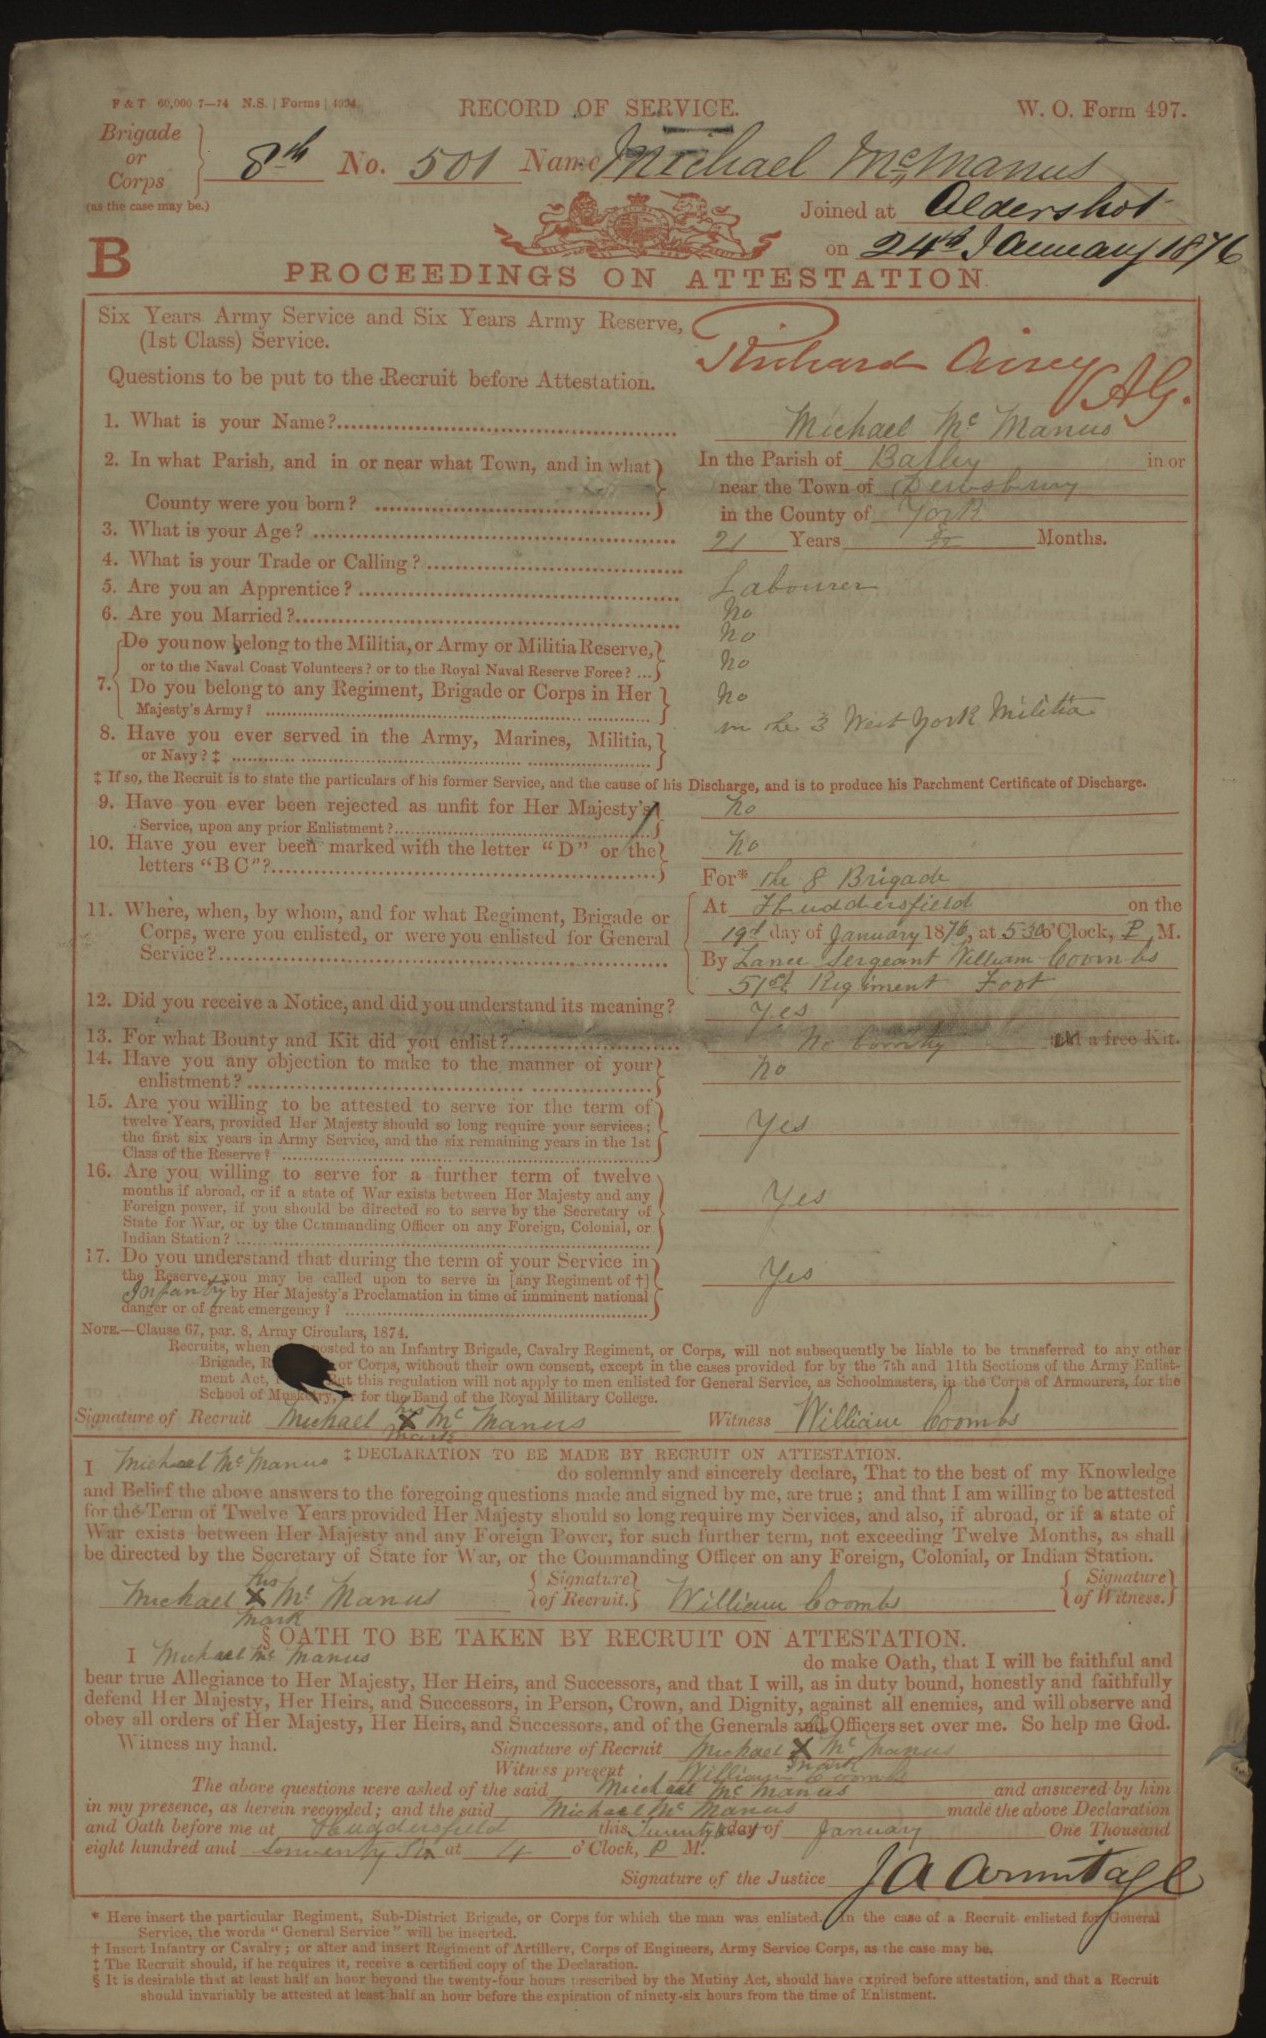 F & T 60,000 7—74 N.S. | Forms |
RECORD OF SERVICE.
W. O. Form 497.
Brigade or Corps (as the case may be.) 8th No. 501 Name Michael McManus
Joined at Aldershot
on 24th January 1876
B
PROCEEDINGS ON ATTESTATION
Six Years Army Service and Six Years Army Reserve,
(1st Class) Service.
Richard Airey AG.
Questions to be put to the Recruit before Attestation.
1. What is your Name? Michael Mc Manus
2. In what Parish, and in or near what Town, and in what
County were you born?
In the Parish of Batley in or
near the Town of Dewsbury
in the County of York
3. What is your Age? 21 Years Months.
4. What is your Trade or Calling? Labourer
5. Are you an Apprentice? No
6. Are you Married? No
7. Do you now belong to the Militia, or Army or Militia Reserve,
or to the Naval Coast Volunteers? or to the Royal Naval Reserve Force? ... No
Do you belong to any Regiment, Brigade or Corps in Her
Majesty's Army? No
8. Have you ever served in the Army, Marines, Militia,
or Navy? ‡ in the 3 West York Militia
‡ If so, the Recruit is to state the particulars of his former Service, and the cause of his Discharge, and is to produce his Parchment Certificate of Discharge.
9. Have you ever been rejected as unfit for Her Majesty's
Service, upon any prior Enlistment? No
10. Have you ever been marked with the letter "D" or the
letters "B C"? No
11. Where, when, by whom, and for what Regiment, Brigade or
Corps, were you enlisted, or were you enlisted for General
Service?
For* the 8 Brigade
At Huddersfield on the
19th day of January 1876, at 5.30 o'Clock, P. M.
By Lance Sergeant William Coombs
51st Regiment Foot
12. Did you receive a Notice, and did you understand its meaning? Yes
13. For what Bounty and Kit did you enlist? No bounty and a free Kit.
14. Have you any objection to make to the manner of your
enlistment? No
15. Are you willing to be attested to serve for the term of
twelve Years, provided Her Majesty should so long require your services;
the first six years in Army Service, and the six remaining years in the 1st
Class of the Reserve? Yes
16. Are you willing to serve for a further term of twelve
months if abroad, or if a state of War exists between Her Majesty and any
Foreign power, if you should be directed so to serve by the Secretary of
State for War, or by the Commanding Officer on any Foreign, Colonial, or
Indian Station? Yes
17. Do you understand that during the term of your Service in
the Reserve, you may be called upon to serve in [any Regiment of †]
Infantry by Her Majesty's Proclamation in time of imminent national
danger or of great emergency? Yes
NOTE.—Clause 67, par. 8, Army Circulars, 1874.
Recruits, when posted to an Infantry Brigade, Cavalry Regiment, or Corps, will not subsequently be liable to be transferred to any other
Brigade, or Corps, without their own consent, except in the cases provided for by the 7th and 11th Sections of the Army Enlist-
ment Act, But this regulation will not apply to men enlisted for General Service, as Schoolmasters, in the Corps of Armourers, for the
School of Musketry, or for the Band of the Royal Military College.
Signature of Recruit Michael his X mark Mc Manus Witness William Coombs
‡ DECLARATION TO BE MADE BY RECRUIT ON ATTESTATION.
I Michael Mc Manus do solemnly and sincerely declare, That to the best of my Knowledge
and Belief the above answers to the foregoing questions made and signed by me, are true; and that I am willing to be attested
for the Term of Twelve Years provided Her Majesty should so long require my Services, and also, if abroad, or if a state of
War exists between Her Majesty and any Foreign Power, for such further term, not exceeding Twelve Months, as shall
be directed by the Secretary of State for War, or the Commanding Officer on any Foreign, Colonial, or Indian Station.
Michael his X mark Mc Manus {Signature of Recruit.} William Coombs {Signature of Witness.}
§ OATH TO BE TAKEN BY RECRUIT ON ATTESTATION.
I Michael Mc Manus do make Oath, that I will be faithful and
bear true Allegiance to Her Majesty, Her Heirs, and Successors, and that I will, as in duty bound, honestly and faithfully
defend Her Majesty, Her Heirs, and Successors, in Person, Crown, and Dignity, against all enemies, and will observe and
obey all orders of Her Majesty, Her Heirs, and Successors, and of the Generals and Officers set over me. So help me God.
Witness my hand. Signature of Recruit Michael his X mark Mc Manus
Witness present William Coombs
The above questions were asked of the said Michael Mc Manus and answered by him
in my presence, as herein recorded; and the said Michael Mc Manus made the above Declaration
and Oath before me at Huddersfield this day of January One Thousand
eight hundred and Seventy Six at 4 o'Clock, P M.
Signature of the Justice J A Armitage
* Here insert the particular Regiment, Sub-District Brigade, or Corps for which the man was enlisted. In the case of a Recruit enlisted for General
Service, the words "General Service" will be inserted.
† Insert Infantry or Cavalry; or alter and insert Regiment of Artillery, Corps of Engineers, Army Service Corps, as the case may be.
‡ The Recruit should, if he requires it, receive a certified copy of the Declaration.
§ It is desirable that at least half an hour beyond the twenty-four hours prescribed by the Mutiny Act, should have expired before attestation, and that a Recruit
should invariably be attested at least half an hour before the expiration of ninety-six hours from the time of Enlistment.